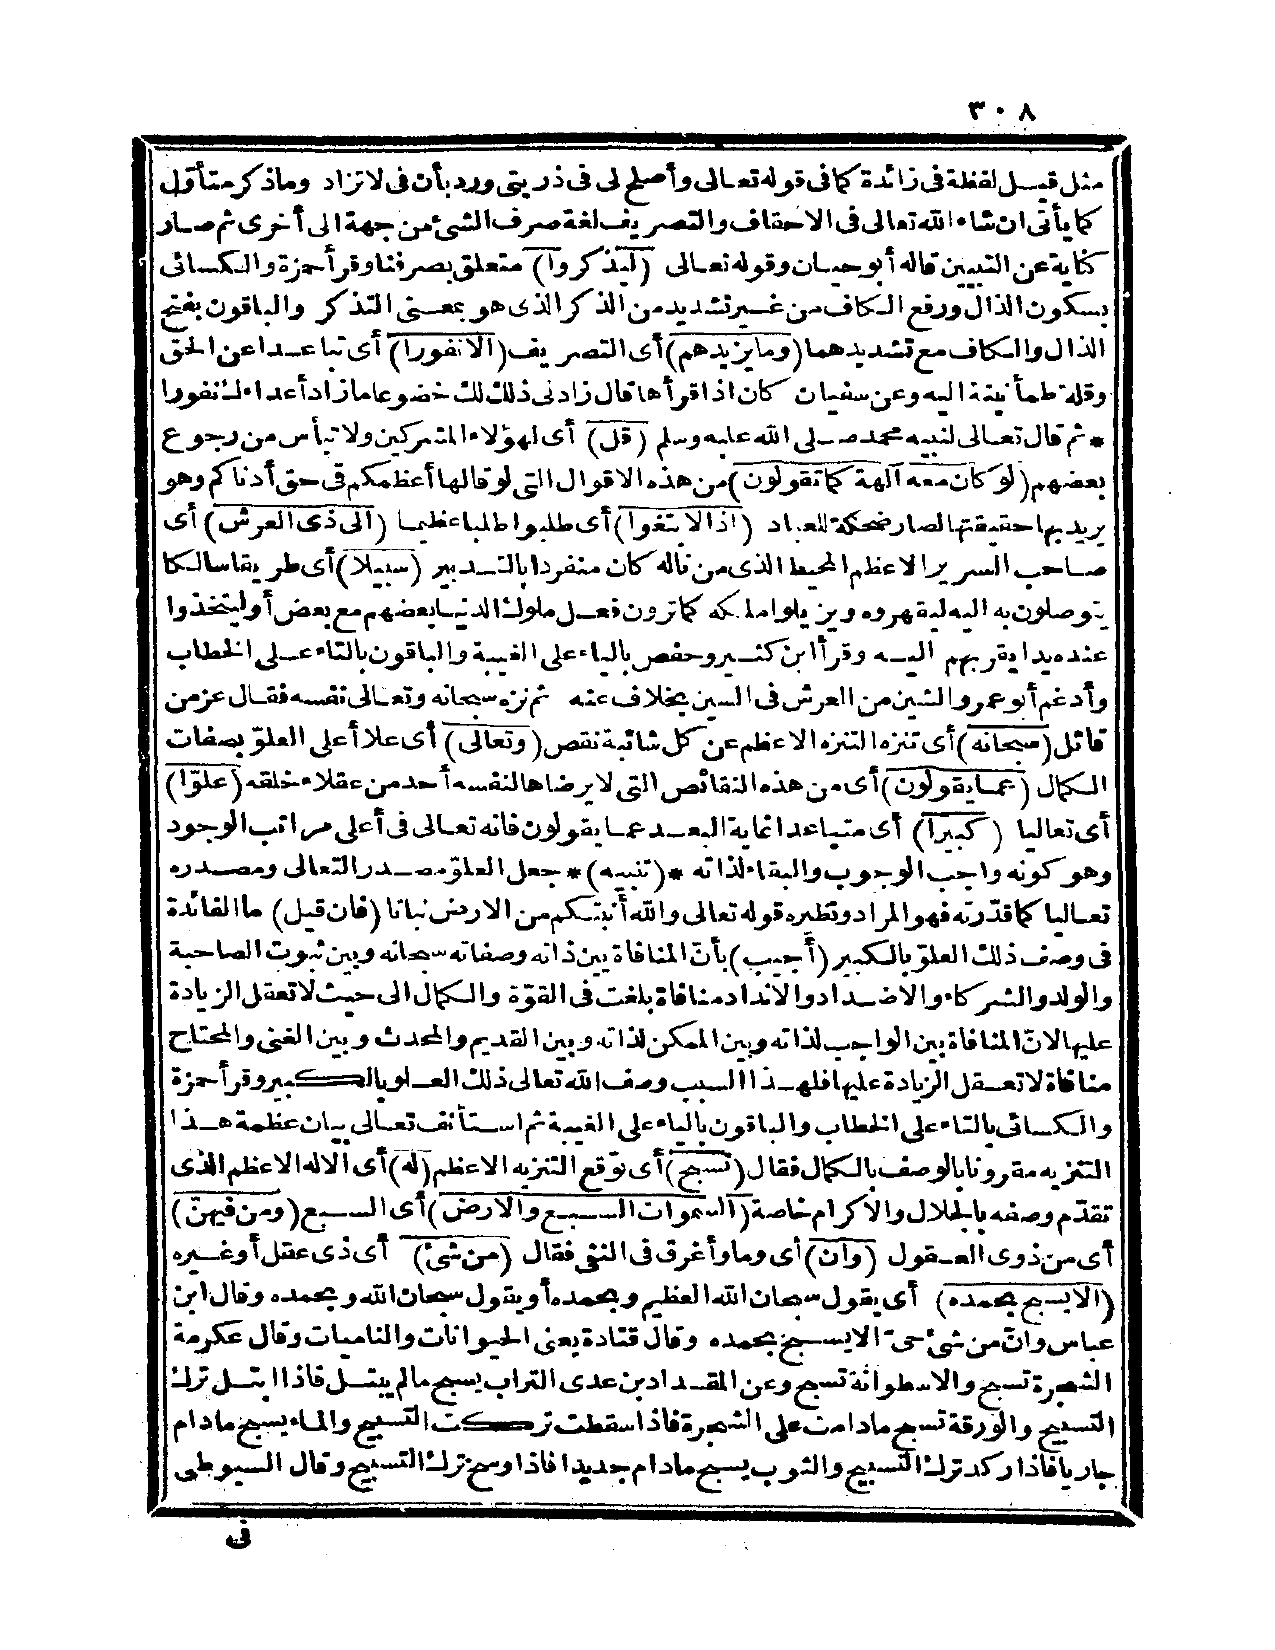 ٣٠٨
مثل قيل لفظة فى زائدة كما فى قوله تعالى وأصلح لى فى ذريتى ورد بأن فى لا تزاد وماذكر متأول
كما يأتى ان شاء الله تعالى فى الاحقاف والتصريف لغة صرف الشئ من جهة الى أخرى ثم صار
كناية عن التبيين قاله أبو حيان وقوله تعالى (ليذكروا) متعلق بصرفنا وقرأ حمزة والكسائى
بسكون الذال ورفع الكاف من غير تشديد من الذكر الذى هو بمعنى التذكر والباقون بفتح
الذال والكاف مع تشديدهما (وما يزيدهم) أى التصريف (الانفورا) أى تباعدا عن الحق
وقلة طمأنينة اليه وعن سفيان كان اذا قرأها قال زادنى ذلك لك خضوعا ما زاد أعداءك نفورا
* ثم قال تعالى لنبيه محمد صلى الله عليه وسلم (قل) أى لهؤلاء المشركين ولا تيأس من رجوع
بعضهم (لو كان معه آلهة كما تقولون) من هذه الاقوال التى لو قالها أعظمكم فى حق أدناكم وهو
يريد بها حقيقتها لصار ضحكة للعباد (اذا لابتغوا) أى طلبوا طلبا عظيما (الى ذى العرش) أى
صاحب السرير الاعظم المحيط الذى من ناله كان منفردا بالتدبير (سبيلا) أى طريقا سالكا
يتوصلون به اليه ليقهروه ويزيلوا ملكه كما ترون فعل ملوك الدنيا بعضهم مع بعض أو ليتخذوا
عنده يدا يقربهم اليه وقرأ ابن كثير وحفص بالياء على الغيبة والباقون بالتاء على الخطاب
وأدغم أبو عمرو الشين من العرش فى السين بخلاف عنه ثم نزه سبحانه وتعالى نفسه فقال عز من
قائل (سبحانه) أى تنزه التنزه الاعظم عن كل شائبة نقص (وتعالى) أى علا أعلى العلوّ بصفات
الكمال (عما يقولون) أى من هذه النقائص التى لا يرضاها لنفسه أحد من عقلاء خلقه (علوّا)
أى تعاليا (كبيرا) أى متباعدا غاية البعد عما يقولون فانه تعالى فى أعلى مراتب الوجود
وهو كونه واجب الوجوب والبقاء لذاته *(تنبيه)* جعل العلوّ مصدر التعالى ومصدره
تعاليا كما قدّرته فهو المراد ونظيره قوله تعالى والله أنبتكم من الارض نباتا (فان قيل) ما الفائدة
فى وصف ذلك العلوّ بالكبير (أجيب) بأنّ المنافاة بين ذاته وصفاته سبحانه وبين ثبوت الصاحبة
والولد والشركاء والاضداد والانداد منافاة بلغت فى القوّة والكمال الى حيث لا تعقل الزيادة
عليها لانّ المنافاة بين الواجب لذاته وبين الممكن لذاته وبين القديم والمحدث وبين الغنى والمحتاج
منافاة لا تعقل الزيادة عليها فلهذا السبب وصف الله تعالى ذلك العلو بالكبير وقرأ حمزة
والكسائى بالتاء على الخطاب والباقون بالياء على الغيبة ثم استأنف تعالى بيان عظمة هذا
التنزيه مقرونا بالوصف بالكمال فقال (تسبح) أى توقع التنزيه الاعظم (له) أى الاله الاعظم الذى
تقدّم وصفه بالجلال والاكرام خاصة (السموات السبع والارض) أى السبع (ومن فيهنّ)
أى من ذوى العقول (وان) أى وما وأغرق فى النفى فقال (من شئ) أى ذى عقل أو غيره
(الا يسبح بحمده) أى يقول سبحان الله العظيم وبحمده أو يقول سبحان الله وبحمده وقال ابن
عباس وانّ من شئ حىّ الا يسبح بحمده وقال قتادة يعنى الحيوانات والناميات وقال عكرمة
الشجرة تسبح والاسطوانة تسبح وعن المقداد بن عدى التراب يسبح ما لم يبتل فاذا ابتل ترك
التسبيح والورقة تسبح مادامت على الشجرة فاذا سقطت تركت التسبيح والماء يسبح مادام
جاريا فاذا ركد ترك التسبيح والثوب يسبح مادام جديدا فاذا وسخ ترك التسبيح وقال السيوطى
فى